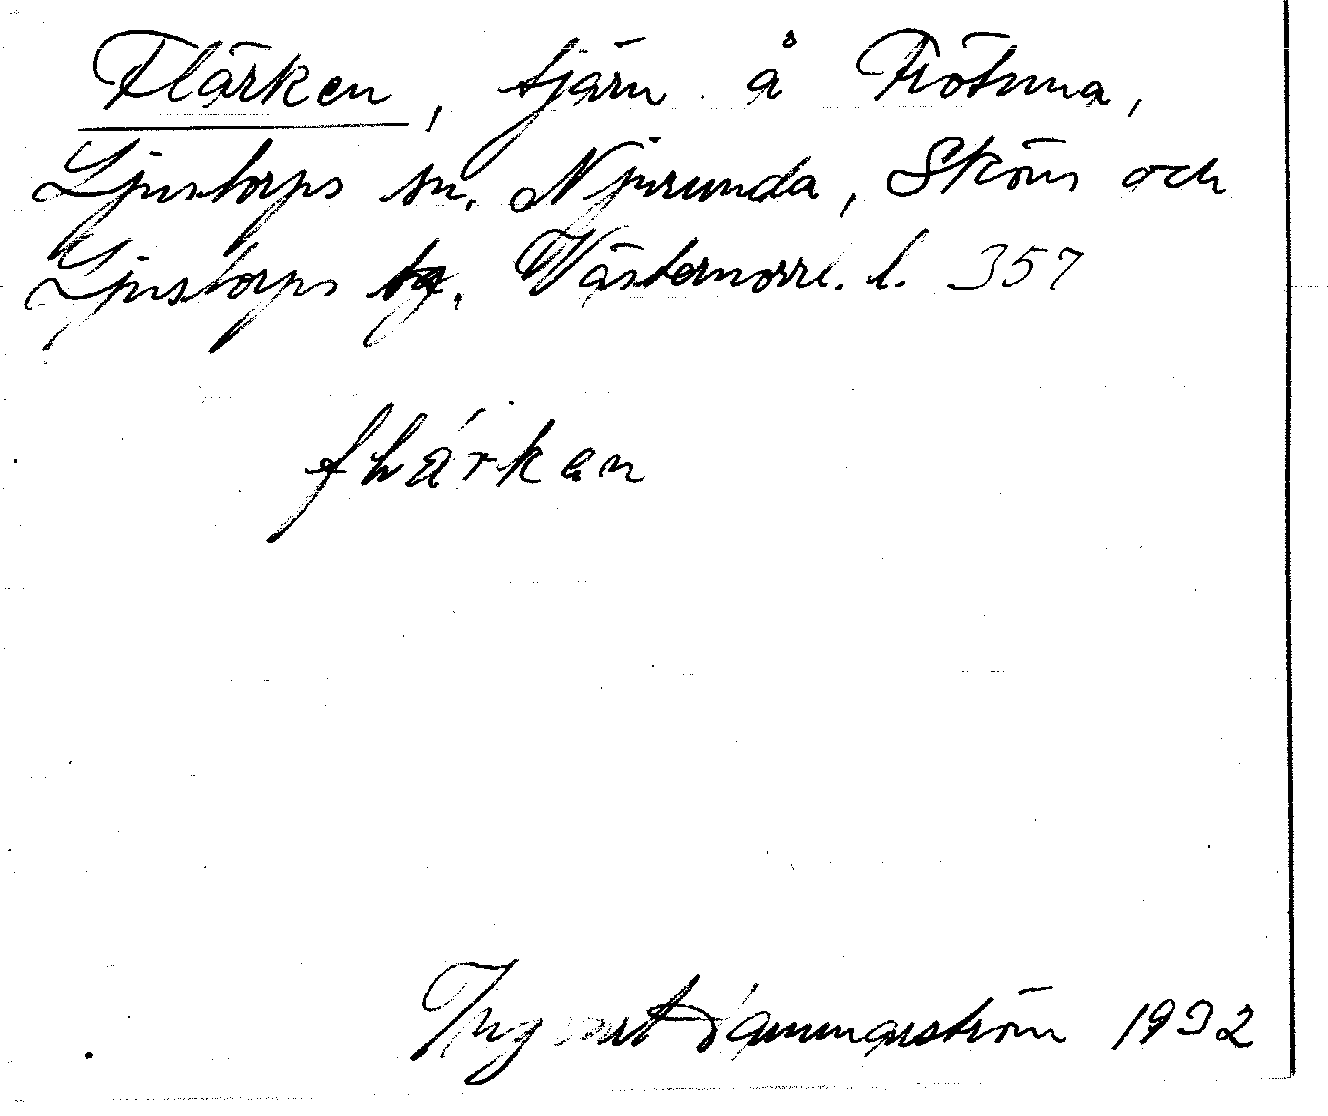 Flärken, tjärn å Frötuna,
Ljustorps sn. Njurunda, Sköns och
Ljustorps tg. Västernorrl. l. 357
flärkan
Ingemart Hammarström 1932